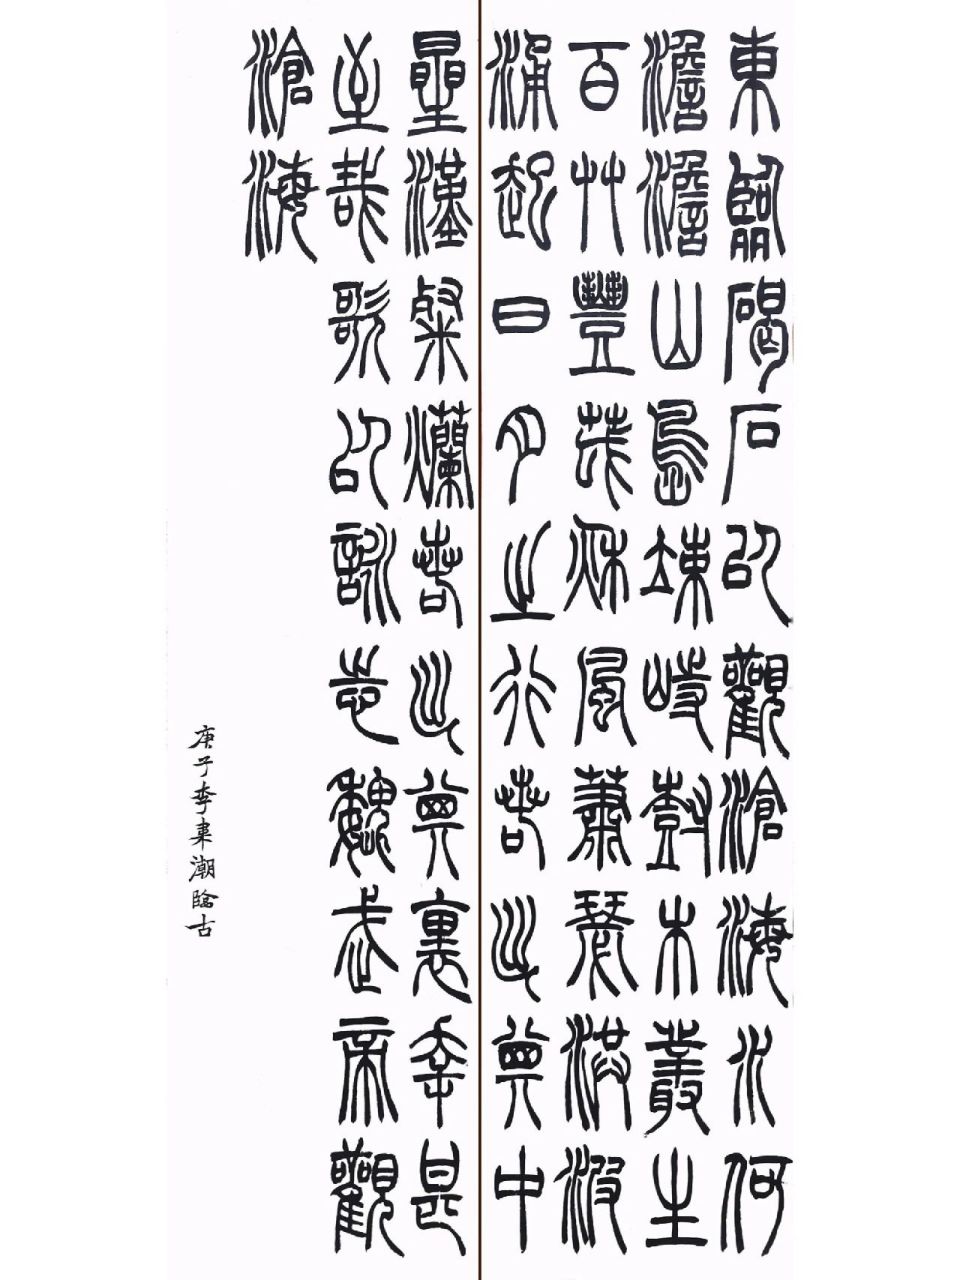 東臨碣石以觀滄海水何
澹澹山島竦峙樹木叢生
百艸豐茂秋風蕭瑟洪波
涌起日月之行若出其中
星漢粲爛若出其裏幸甚
至哉歌以詠志魏武帝觀
滄海
庚子李潮臨古